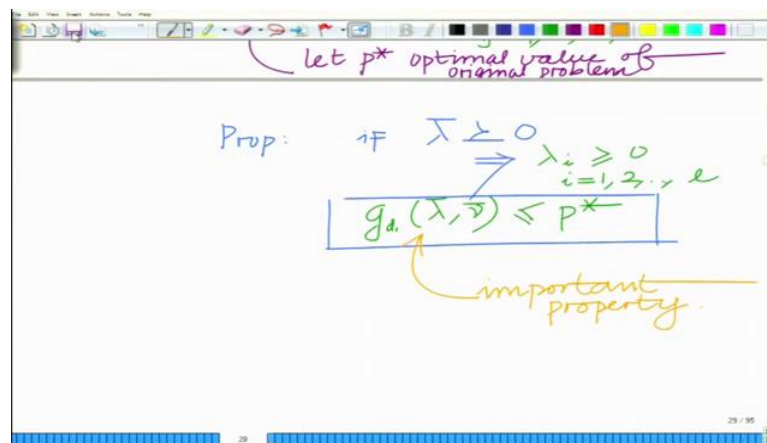 File Edit View Insert Actions Tools Help
let p* optimal value of
original problem
Prop: if λ̄ ≽ 0
⇒ λi ≥ 0
i=1, 2, .., l
gd (λ̄, ν̄) ≤ p*
important
property.
29 / 95
29